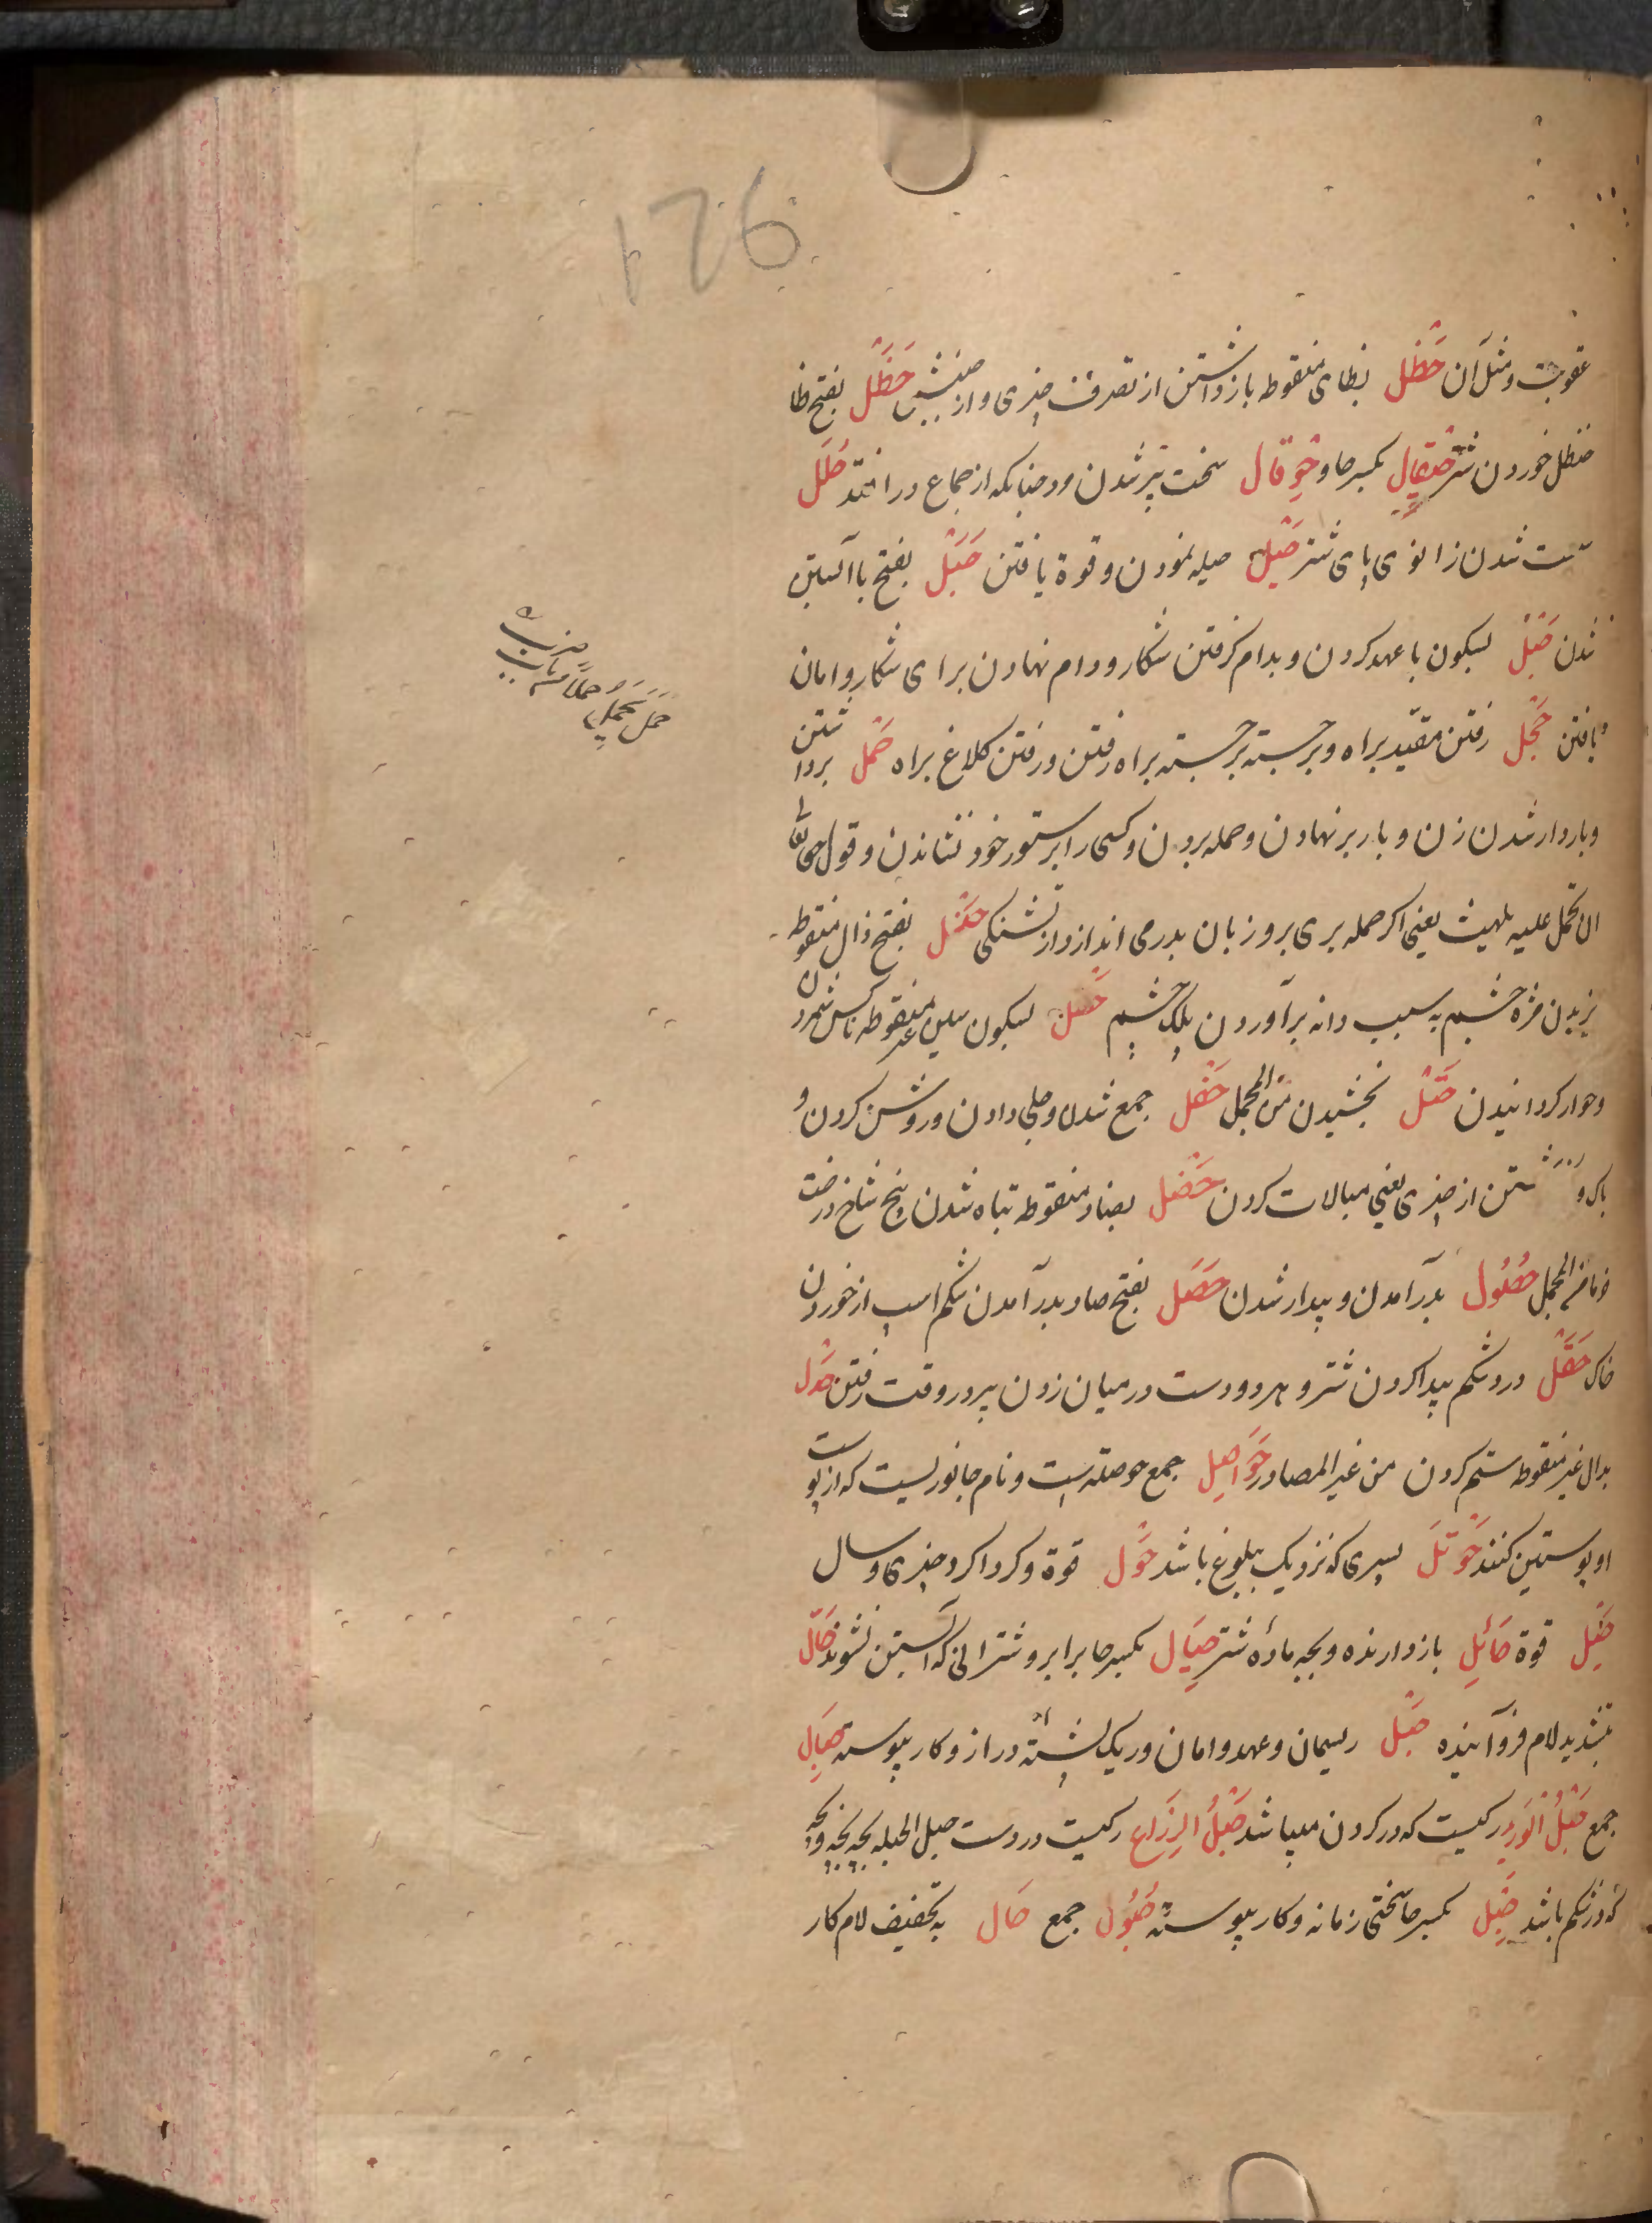 126
عقوبت و مثل آن حَظْل بظای منقوطه بازداشتن از تصرف چیزی و از جنبش حَظَل بفتح ظا
حنظل خوردن شتر حِیقال بکسر حا و حَوْقال سخت پیر شدن مرد چنانکه از جماع درافتد حَلَل
سست شدن زانوی پای شتر حَیْل حیله نمودن و قوة یافتن حَبَل بفتح با آبستن
شدن حَبْل بسکون با عهد کردن و بدام گرفتن شکار و دام نهادن برای شکار و امان
یافتن حَجْل رفتن مقیّد براه و برجسته برجسته براه رفتن و رفتن کلاغ براه حَمْل برداشتن
و باردار شدن زن و بار بر نهادن و حمله بردن و کسی را بر ستور خود نشاندن و قول حق تعالی
ان تحمل علیه یلهث یعنی اگر حمله بری برو زبان بدر می اندازد از تشنگی حَذَل بفتح ذال منقوطه
ریزیدن مژه چشم به سبب دانه برآوردن پلک چشم حَسْل بسکون سین غیر منقوطه ناکس شمردن
و خوار گردانیدن حَتْل بخشیدن من المجمل حَفْل جمع شدن و جلی دادن و روشن کردن و
باک داشتن از چیزی یعنی مبالات کردن حَضَل بضاد منقوطه تباه شدن بیخ شاخ درخت
خرما من المجمل حُصُول بدرآمدن و پدیدار شدن حَصَل بفتح صاد بدرآمدن شکم اسپ از خوردن
خاک حَقَل درد شکم پیدا کردن شتر و هر دو دست در میان زدن پیر در وقت رفتن حَدْل
بدال غیر منقوطه ستم کردن من غیر المصادر حَوَاصِل جمع حوصله است و نام جانوریست که از پوست
او پوستین کنند حَوْتَل پسری که نزدیک ببلوغ باشد حَوْل قوة و گرداگرد چیزی و سال
حَیْل قوة حَائِل بازدارنده و بچه مادۀ شتر حِیَال بکسر حا برابر و شترانی که آبستن نشوند حَالّ
بتشدید لام فروآینده حَبْل ریسمان و عهد و امان و ریک پشتۀ دراز و کار پیوسته حِبَال
جمع حَبْلُ الْوَرِید رگیست که در گردن میباشد حَبْلُ الذِّرَاع رگیست در دست حبل الحبله بچه بچه
که در شکم باشد حِبْل بکسر حا سختی زمانه و کار پیوسته حُبُول جمع حَال به تخفیف لام کار
حَمَلَ یَحْمِلُ حَمْلاً من باب ضرب